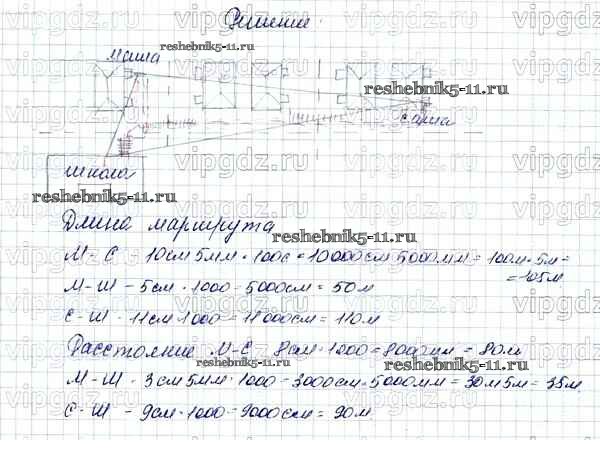 Решение
Маша
Саша
школа
Длина маршрута
М-С - 10см 5мм · 1000 = 10000см 5000мм = 100м · 5м =
= 105м.
М-Ш - 5см · 1000 - 5000см = 50м
С-Ш - 11см · 1000 - 11000см = 110м
Расстояние М-С - 8см · 1000 = 8000мм = 80м
М-Ш - 3см 5мм · 1000 - 3000см · 5000мм = 30м 5м = 35м.
С-Ш - 9см · 1000 - 9000см = 90м.
vipgdz.ru
reshebnik5-11.ru
reshebnik5-11.ru
reshebnik5-11.ru
reshebnik5-11.ru
reshebnik5-11.ru
reshebnik5-11.ru